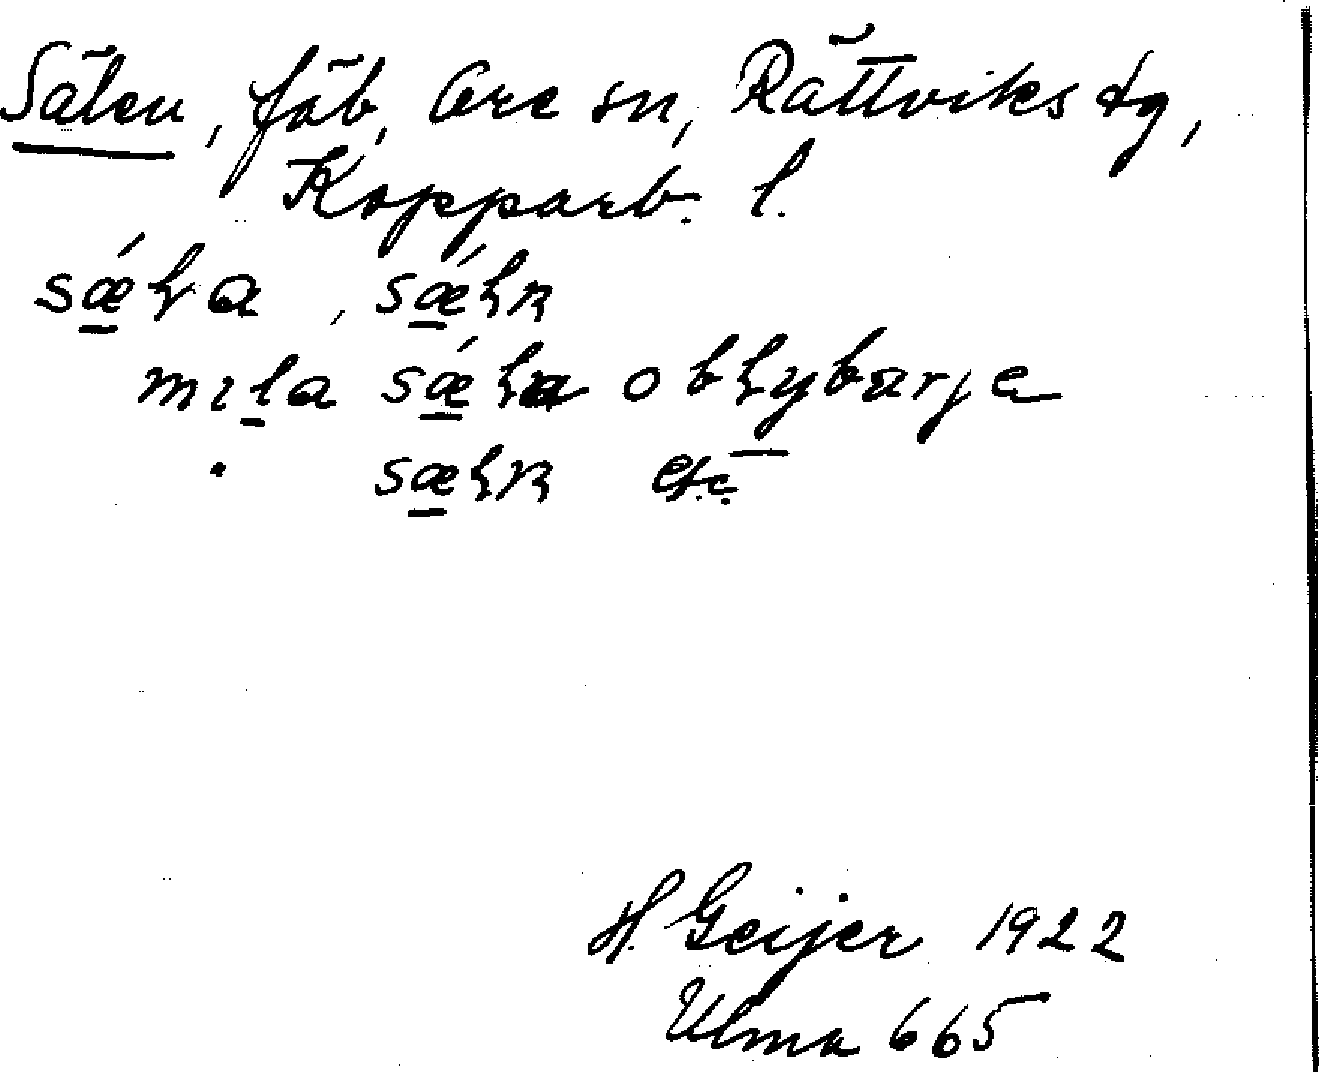 Sälen, fäb, Ore sn, Rättviks tg,
Kopparb. l.
sǽɫa, sǽɫn
mıla sǽɫa o bɫybærjɐ
" sæɫn etc
H. Geijer 1922
Ulma 665